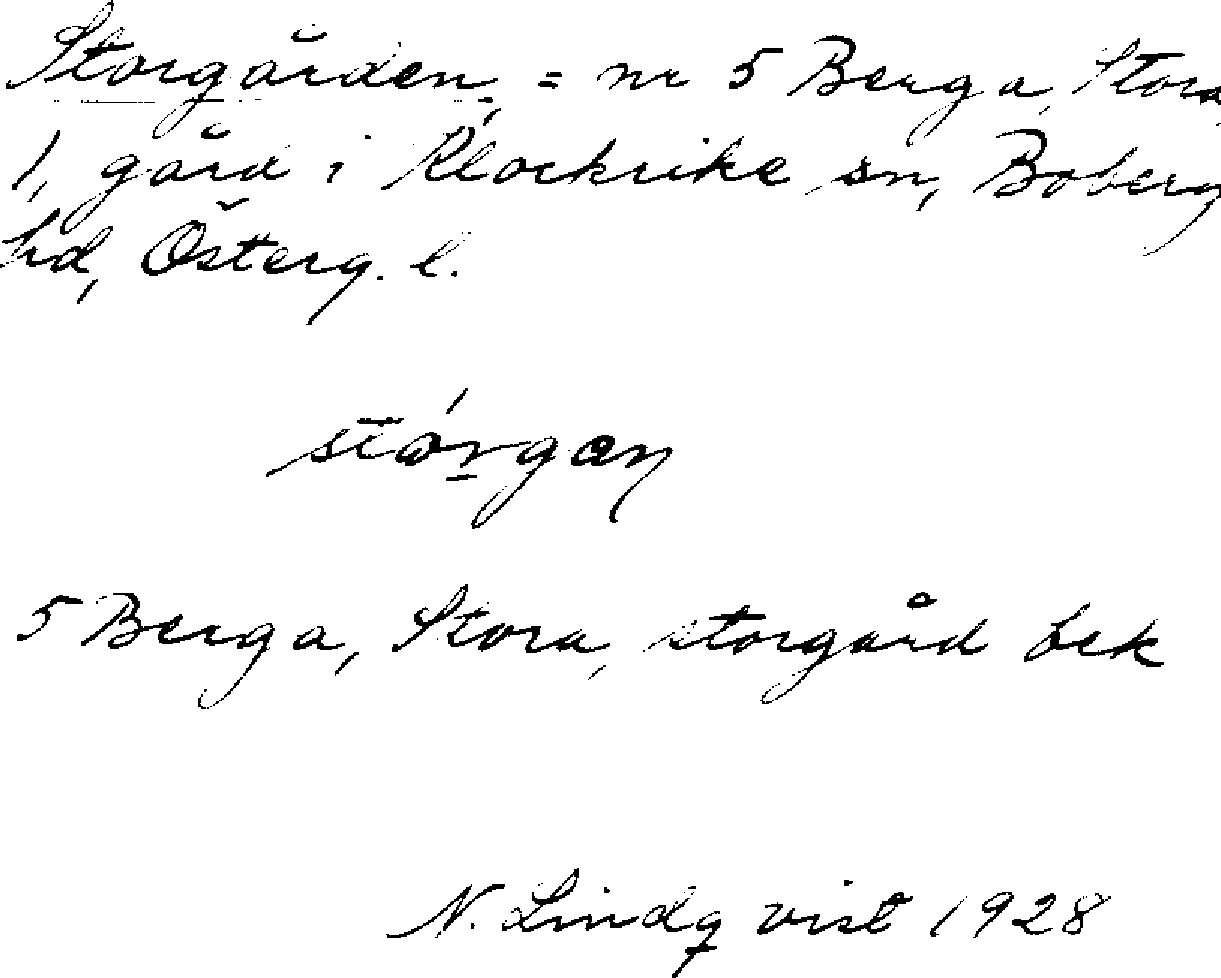 Storgården, = nr 5 Berga, Stora,
1, gård i Klockrike sn, Boberg
hd, Österg. l.
stórgan
5 Berga, Stora, storgård bek
N. Lindqvist 1928